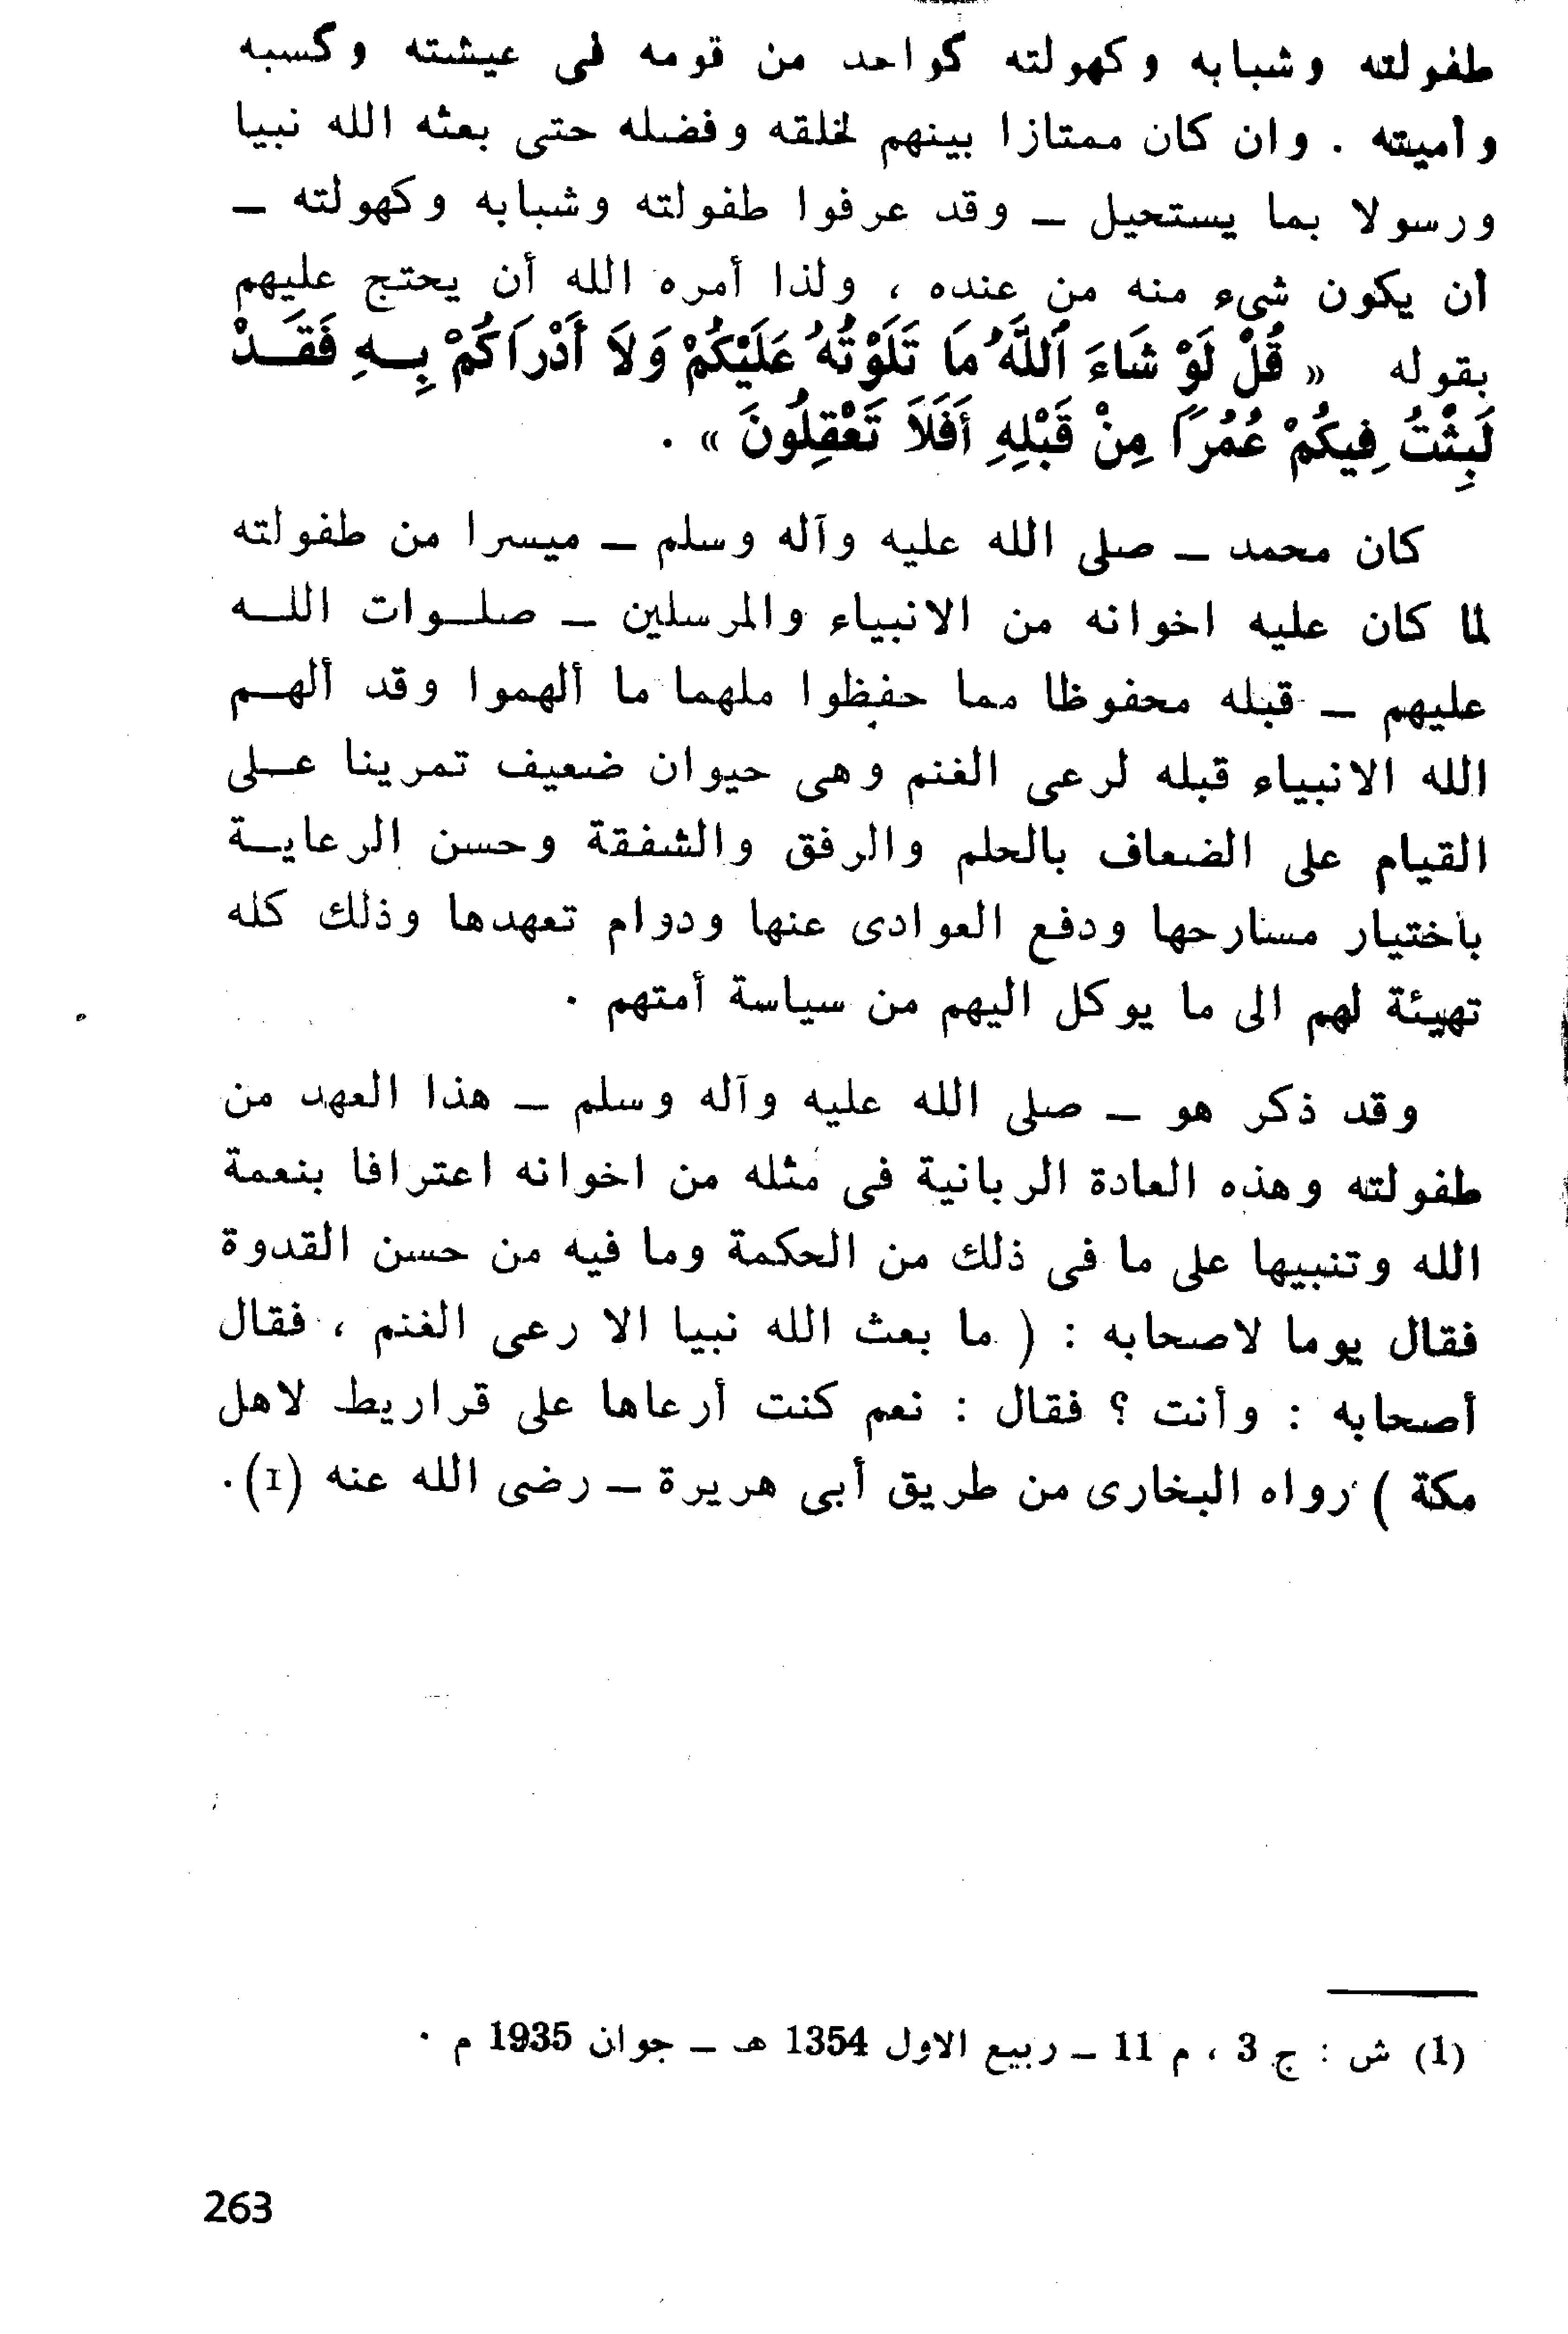 طفولته وشبابه وكهولته كواحد من قومه فى عيشته وكسبه
وأميته . وان كان ممتازا بينهم لخلقه وفضله حتى بعثه الله نبيا
ورسولا بما يستحيل – وقد عرفوا طفولته وشبابه وكهولته –
أن يكون شىء منه من عنده ، ولذا أمره الله أن يحتج عليهم
بقوله « قُلْ لَوْ شَاءَ ٱللَّهُ مَا تَلَوْتُهُ عَلَيْكُمْ وَلاَ أَدْرَاكُمْ بِـهِ فَقَـدْ
لَبِثْتُ فِيكُمْ عُمُرًا مِنْ قَبْلِهِ أَفَلاَ تَعْقِلُونَ » .
كان محمد – صلى الله عليه وآله وسلم – ميسرا من طفولته
لما كان عليه اخوانه من الانبياء والمرسلين – صلـوات اللـه
عليهم – قبله محفوظا مما حفظوا ملهما ما ألهموا وقد ألهـم
الله الانبياء قبله لرعى الغنم وهى حيوان ضعيف تمرينا عـلى
القيام على الضعاف بالحلم والرفق والشفقة وحسن الرعايـة
باختيار مسارحها ودفع العوادى عنها ودوام تعهدها وذلك كله
تهيئة لهم الى ما يوكل اليهم من سياسة أمتهم .
وقد ذكر هو – صلى الله عليه وآله وسلم – هذا العهد من
طفولته وهذه العادة الربانية فى مثله من اخوانه اعترافا بنعمة
الله وتنبيها على ما فى ذلك من الحكمة وما فيه من حسن القدوة
فقال يوما لاصحابه : ( ما بعث الله نبيا الا رعى الغنم ، فقال
أصحابه : وأنت ؟ فقال : نعم كنت أرعاها على قراريط لاهل
مكة ) رواه البخارى من طريق أبى هريرة – رضى الله عنه (1).
(1) ش : ج 3 ، م 11 – ربيع الاول 1354 هـ – جوان 1935 م .
263